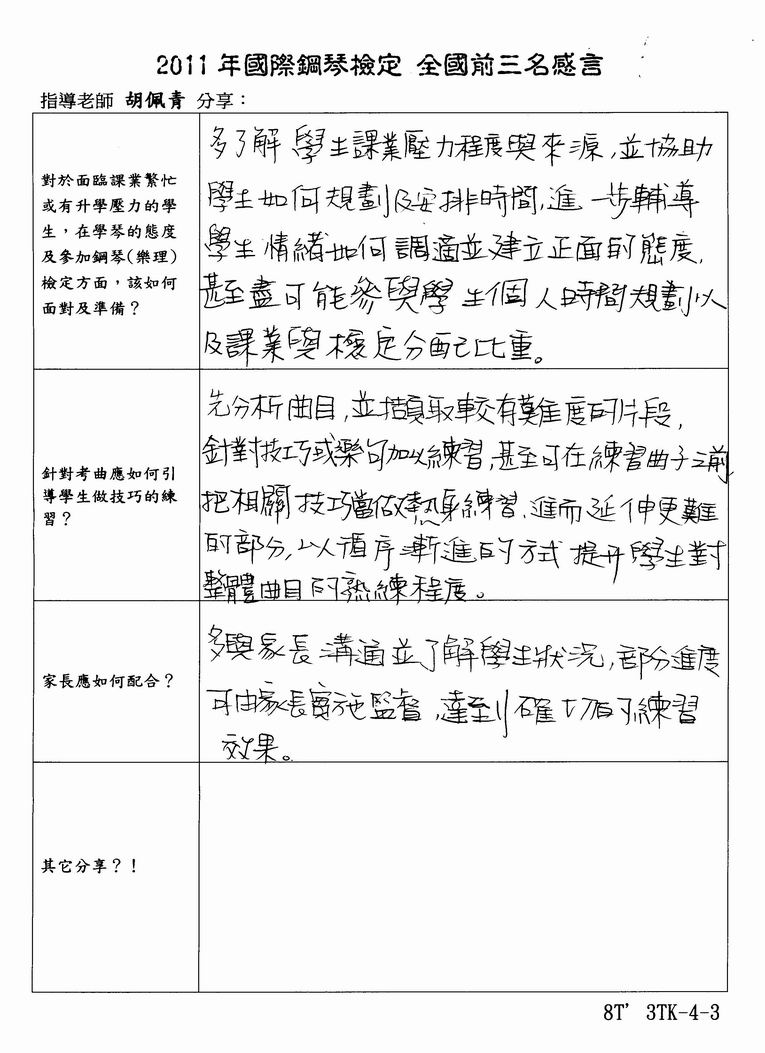 2011 年國際鋼琴檢定 全國前三名感言
指導老師 胡佩青 分享：
對於面臨課業繁忙
或有升學壓力的學
生，在學琴的態度
及參加鋼琴(樂理)
檢定方面，該如何
面對及準備？
多了解 學生課業壓力程度與來源，並協助
學生如何規劃及安排時間，進一步輔導
學生情緒如何調適並建立正面的態度，
甚至盡可能參與學生個人時間規劃以
及課業與檢定分配比重。
針對考曲應如何引
導學生做技巧的練
習？
先分析曲目，並擷取較有難度的片段，
針對技巧或樂句加以練習，甚至可在練習曲子之前
把相關技巧當做熱身練習，進而延伸更難
的部分，以循序漸進的方式提升學生對
整體曲目的熟練程度。
家長應如何配合？
多與家長溝通並了解學生狀況，部份進度
可由家長實施監督，達到確切的練習
效果。
其它分享？！
8T' 3TK-4-3